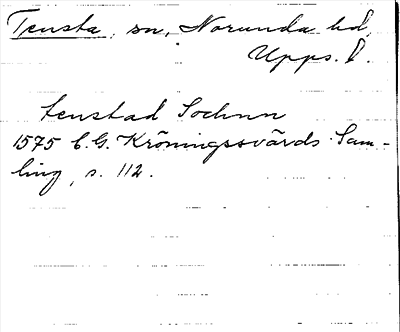 Tensta sn, Norunda hd,
Upps. l.
tenstad Sochnn
1575 C. G. Kröningssvärds Sam-
ling, s. 112.